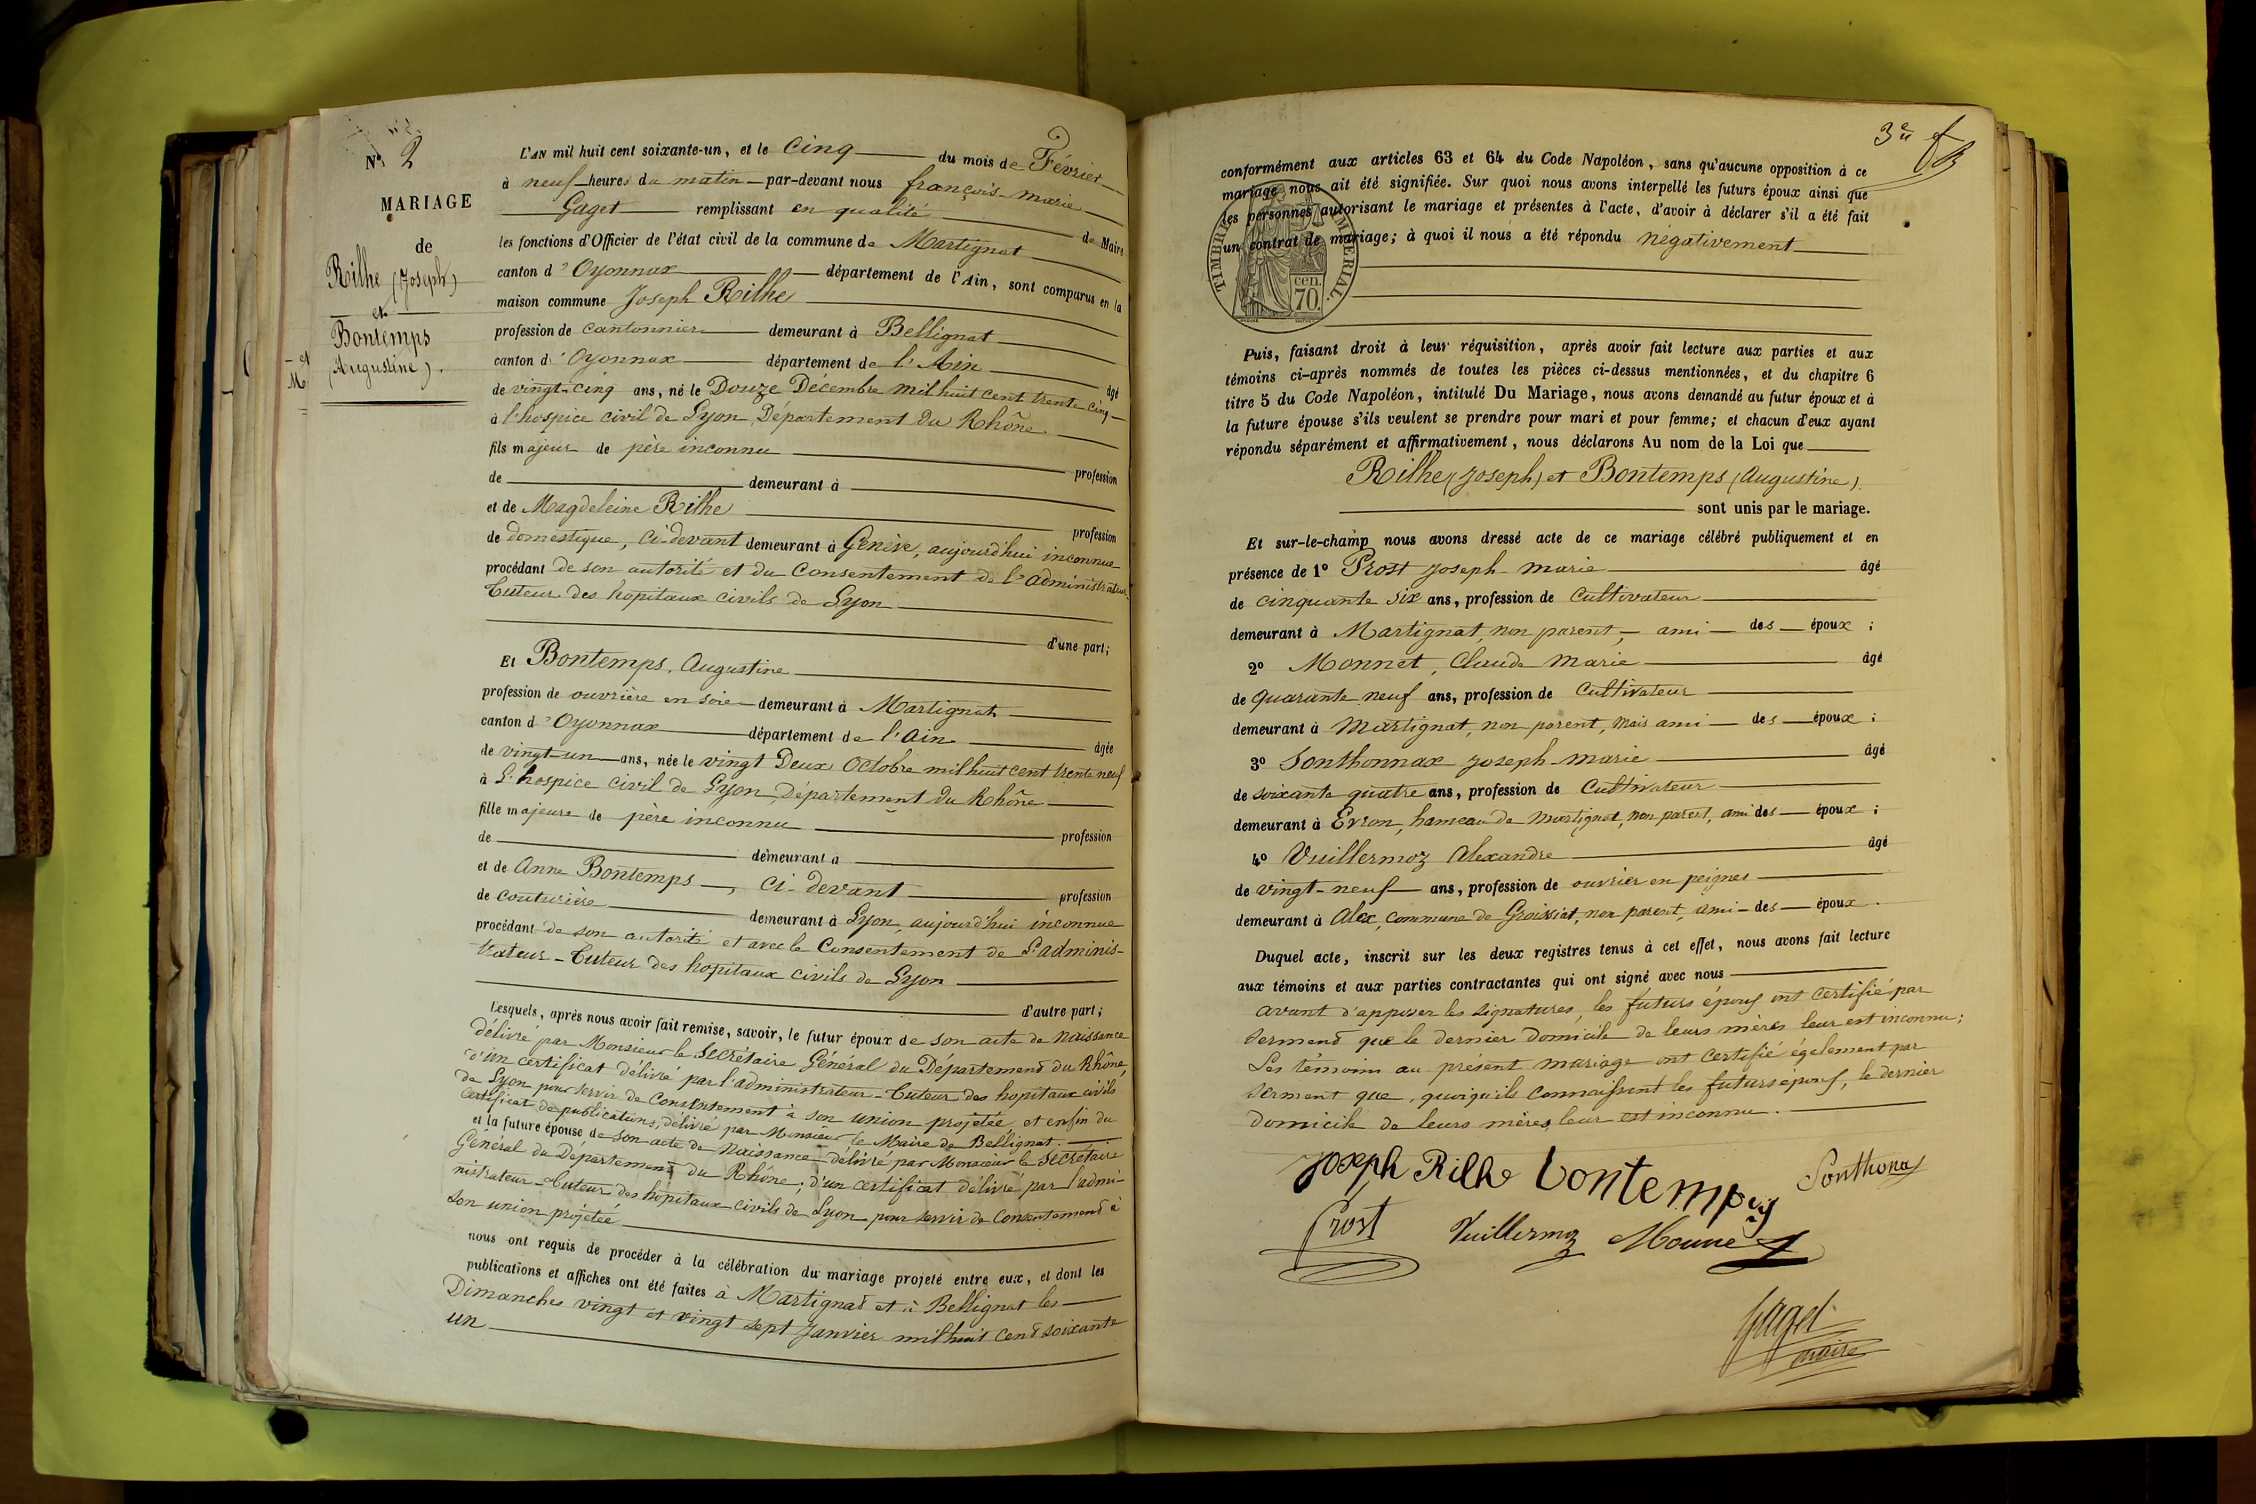 N° 2
MARIAGE
de
Rilhe (Joseph)
et
Bontemps
(Augustine).
L'AN mil huit cent soixante-un, et le cinq du mois de Février
à neuf heures du matin par-devant nous françois-marie
Gaget remplissant en qualité de Maire
les fonctions d'Officier de l'état civil de la commune de Martignat
canton d'Oyonnax département de l'Ain, sont comparus en la
maison commune Joseph Rilhe
profession de cantonnier demeurant à Bellignat
canton d'Oyonnax département de l'Ain âgé
de vingt-cinq ans, né le Douze Décembre mil huit cent trente-cinq
à l'hospice civil de Lyon, Departement du Rhône
fils majeur de père inconnu profession
de demeurant à
et de Magdeleine Rilhe profession
de domestique, ci-devant demeurant à Genève, aujourd'hui inconnue
procédant de son autorité et du Consentement de l'administrateur-
Tuteur des hopitaux civils de Lyon
d'une part;
Et Bontemps, Augustine
profession de ouvrière en soie demeurant à Martignat
canton d'Oyonnax département de l'ain âgée
de vingt-un ans, née le vingt Deux Octobre mil huit cent trente neuf
à L'hospice civil de Lyon, Département du Rhône
fille majeure de père inconnu profession
de demeurant à
et de Anne Bontemps, ci-devant profession
de couturière demeurant à Lyon, aujourd'hui inconnue
procédant de son autorité et avec le Consentement de L'adminis-
trateur-Tuteur des hopitaux civils de Lyon
d'autre part;
Lesquels, après nous avoir fait remise, savoir, le futur époux de son acte de naissance
délivré par Monsieur le Secrétaire Général du Département du Rhône,
d'un certificat délivré par l'administrateur-Tuteur des hopitaux civils
de Lyon pour servir de Consentement à son union projetée, et enfin du
Certificat de publications, délivré par Monsieur le Maire de Bellignat.
et la future épouse de son acte de Naissance délivré par Monsieur le Secrétaire
Général du Département du Rhône; d'un certificat délivré par l'admi-
nistrateur-Tuteur des hopitaux civils de Lyon pour servir de Consentement à
son union projetée
nous ont requis de procéder à la célébration du mariage projeté entre eux, et dont les
publications et affiches ont été faites à Martignat et à Bellignat les
Dimanches vingt et vingt sept Janvier mil huit cent soixante
un
3e
conformément aux articles 63 et 64 du Code Napoléon, sans qu'aucune opposition à ce
mariage nous ait été signifiée. Sur quoi nous avons interpellé les futurs époux ainsi que
les personnes autorisant le mariage et présentes à l'acte, d'avoir à déclarer s'il a été fait
un contrat de mariage; à quoi il nous a été répondu négativement
TIMBRE IMPÉRIAL.
70 cen.
Puis, faisant droit à leur réquisition, après avoir fait lecture aux parties et aux
témoins ci-après nommés de toutes les pièces ci-dessus mentionnées, et du chapitre 6
titre 5 du Code Napoléon, intitulé Du Mariage, nous avons demandé au futur époux et à
la future épouse s'ils veulent se prendre pour mari et pour femme; et chacun d'eux ayant
répondu séparément et affirmativement, nous déclarons Au nom de la Loi que
Rilhe (Joseph) et Bontemps (Augustine)
sont unis par le mariage.
Et sur-le-champ nous avons dressé acte de ce mariage célébré publiquement et en
présence de 1° Prost Joseph-marie âgé
de cinquante six ans, profession de Cultivateur
demeurant à Martignat, non parent, ami des époux;
2° Monnet, Claude Marie âgé
de quarante neuf ans, profession de Cultivateur
demeurant à Martignat, non parent, mais ami des époux;
3° Sonthonnax Joseph-marie âgé
de soixante quatre ans, profession de Cultivateur
demeurant à Evron, hameau de Martignat, non parent, ami des époux;
4° Vuillermoz Alexandre âgé
de vingt-neuf ans, profession de ouvrier en peignes
demeurant à Alex, commune de Groissiat, non parent, ami des époux.
Duquel acte, inscrit sur les deux registres tenus à cet effet, nous avons fait lecture
aux témoins et aux parties contractantes qui ont signé avec nous
avant d'apposer les signatures, les futurs époux ont certifié par
serment que le dernier domicile de leurs mères leur est inconnu;
Les témoins au présent mariage ont certifié également par
serment que, quoiqu'ils connaissent les futurs époux, le dernier
domicile de leurs mères, leur est inconnu.
Joseph Rilhe bontempsy Sonthonax
Prost Vuillermoz Monnet
Gaget
maire